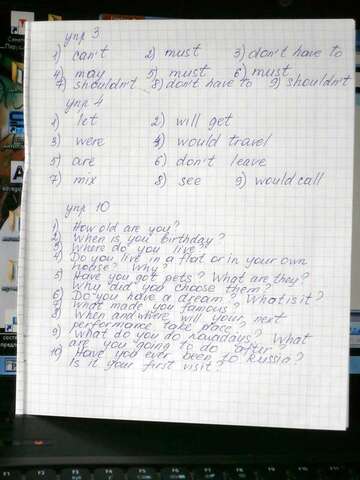 упр 3
1) can't 2) must 3) don't have to
4) may 5) must 6) must
7) shouldn't 8) don't have to 9) shouldn't
упр 4
1) let 2) will get
3) were 4) would travel
5) are 6) don't leave
7) mix 8) see 9) would call
упр 10
1) How old are you?
2) When is you birthday?
3) Where do you live?
4) Do you live in a flat or in your own
house? Why?
5) Have you got pets? What are they?
Why did you choose them?
6) Do you have a dream? What is it?
7) What made you famous?
8) When and where will your next
performance take place?
9) What do you do nowadays? What
are you going to do after?
10) Have you ever been to Russia?
Is it your first visit?